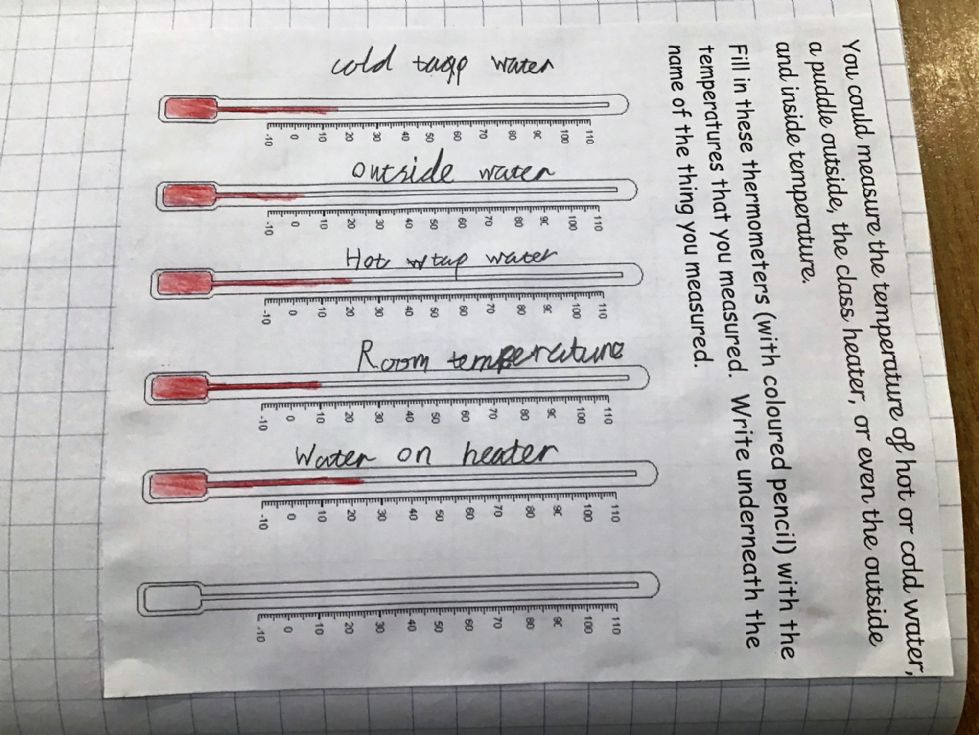 You could measure the temperature of hot or cold water,
a puddle outside, the class heater, or even the outside
and inside temperature.
Fill in these thermometers (with coloured pencil) with the
temperatures that you measured. Write underneath the
name of the thing you measured.
cold tagp water
-10 0 10 20 30 40 50 60 70 80 90 100 110
outside water
-10 0 10 20 30 40 50 60 70 80 90 100 110
Hot wtap water
-10 0 10 20 30 40 50 60 70 80 90 100 110
Room temperature
-10 0 10 20 30 40 50 60 70 80 90 100 110
Water on heater
-10 0 10 20 30 40 50 60 70 80 90 100 110
-10 0 10 20 30 40 50 60 70 80 90 100 110